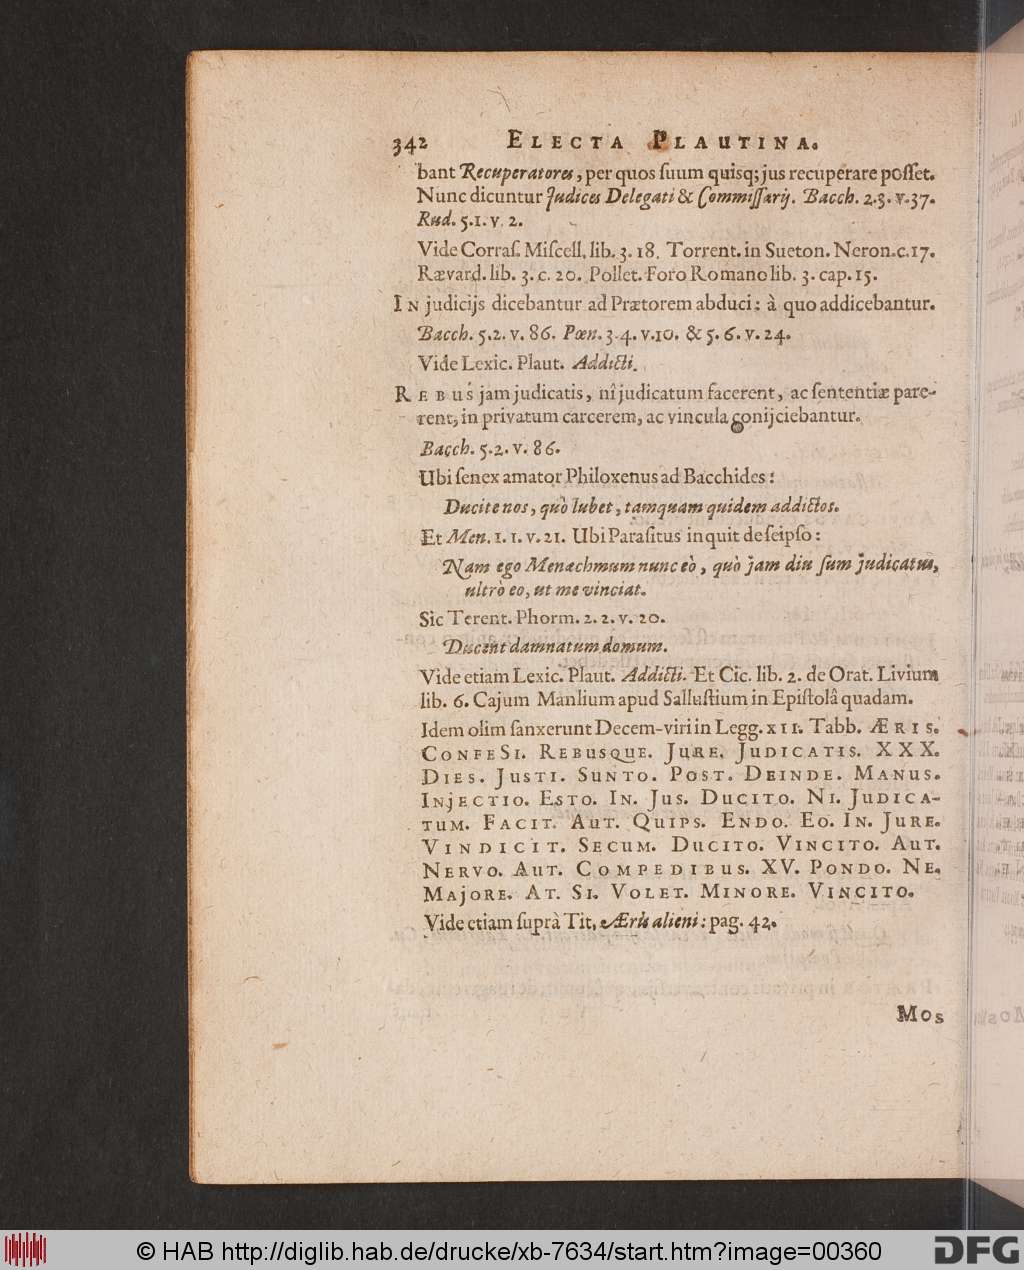 342 ELECTA PLAUTINA.
bant Recuperatores, per quos ſuum quisq; jus recuperare poſſet.
Nunc dicuntur Judices Delegati & Commiſſarij. Bacch. 2.3. v.37.
Rud. 5.1. v. 2.
Vide Corraſ. Miſcell. lib. 3. 18. Torrent. in Sueton. Neron. c. 17.
Rævard. lib. 3. c. 20. Pollet. Foro Romano lib. 3. cap. 15.
IN judicijs dicebantur ad Prætorem abduci: à quo addicebantur.
Bacch. 5.2. v. 86. Pœn. 3.4. v.10. & 5. 6. v. 24.
Vide Lexic. Plaut. Addicti.
REBUS jam judicatis, nî judicatum facerent, ac ſententiæ pare-
rent, in privatum carcerem, ac vincula conijciebantur.
Bacch. 5.2. v. 86.
Ubi ſenex amator Philoxenus ad Bacchides:
Ducite nos, quò lubet, tamquam quidem addictos.
Et Men. 1. 1. v. 21. Ubi Paraſitus inquit de ſeipſo:
Nam ego Menæchmum nunc eò, quò jam diu ſum judicatus,
ultrò eo, ut me vinciat.
Sic Terent. Phorm. 2. 2. v. 20.
Ducent damnatum domum.
Vide etiam Lexic. Plaut. Addicti. Et Cic. lib. 2. de Orat. Livium
lib. 6. Cajum Manlium apud Salluſtium in Epiſtolâ quadam.
Idem olim ſanxerunt Decem-viri in Legg. XII. Tabb. ÆRIS.
CONFESI. REBUSQUE. JURE. JUDICATIS. XXX.
DIES. JUSTI. SUNTO. POST. DEINDE. MANUS.
INJECTIO. ESTO. IN. JUS. DUCITO. NI. JUDICA-
TUM. FACIT. AUT. QUIPS. ENDO. EO. IN. JURE.
VINDICIT. SECUM. DUCITO. VINCITO. AUT.
NERVO. AUT. COMPEDIBUS. XV. PONDO. NE.
MAJORE. AT. SI. VOLET. MINORE. VINCITO.
Vide etiam ſuprà Tit. Æris alieni: pag. 42.
Mos
© HAB http://diglib.hab.de/drucke/xb-7634/start.htm?image=00360
DFG